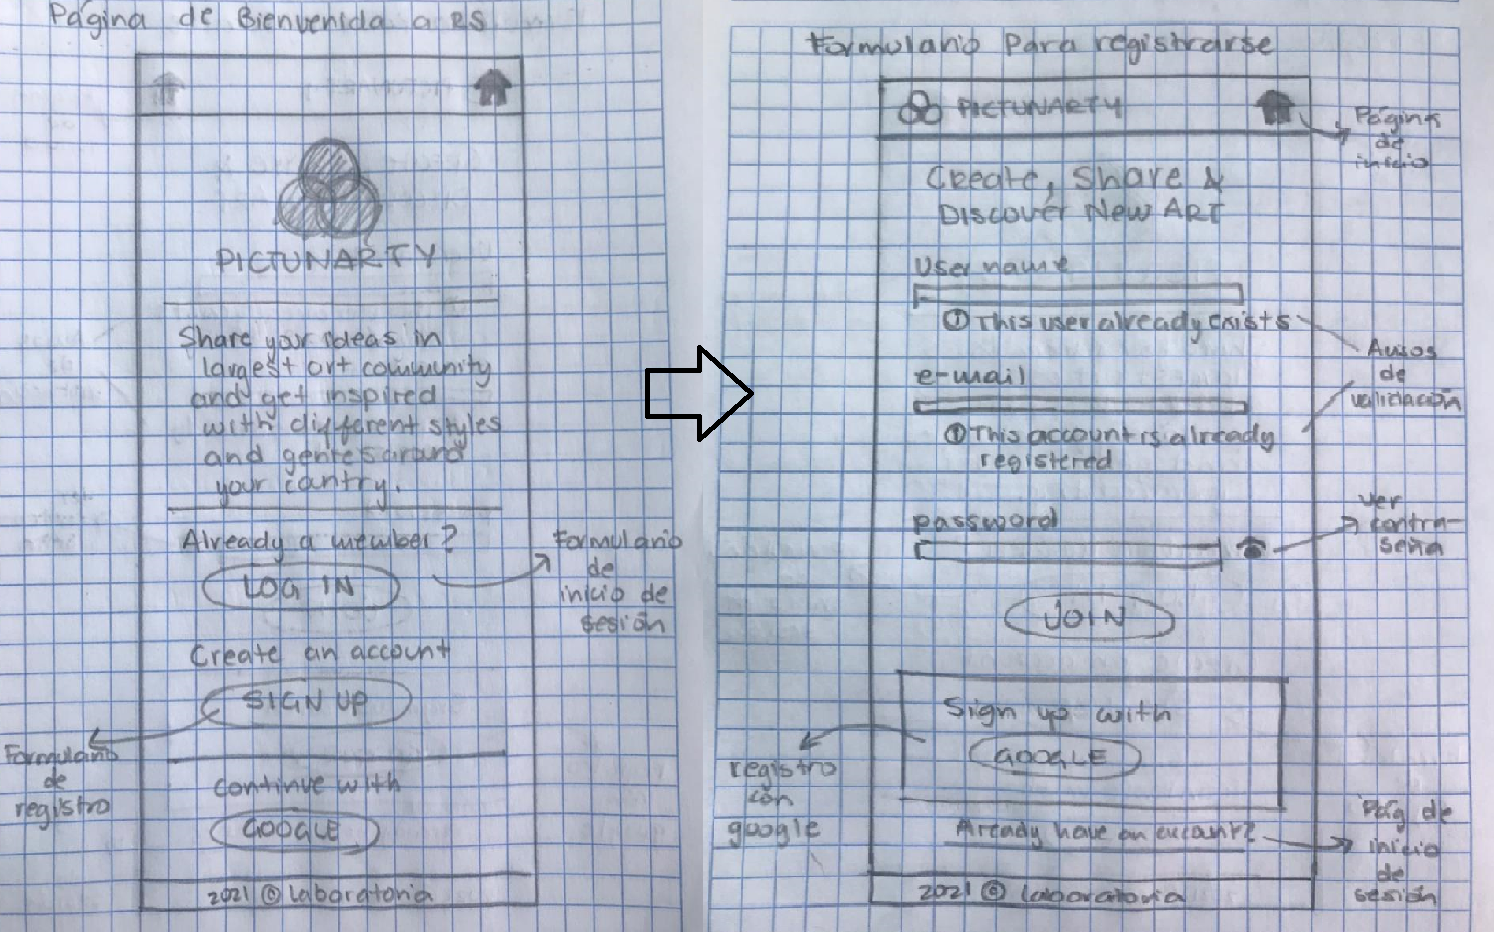 Página de Bienvenida a RS
PICTUNARTY
Share your ideas in
largest art community
and get inspired
with different styles
and gentes around
your cantry.
Already a member?
LOG IN
Formulario
de
inicio de
sesión
Create an account
SIGN UP
Formulario
de
registro
continue with
GOOGLE
2021 © Laboratoria
Formulario Para registrarse
PICTUNARTY
Página
de
inicio
Create, Share &
Discover New ART
User name
! This user already exists
Avisos
de
validación
e-mail
! This account is already
registered
password
ver
contra-
seña
JOIN
Sign up with
GOOGLE
registro
con
google
Already have an account?
Pág de
inicio
de
sesión
2021 © Laboratoria